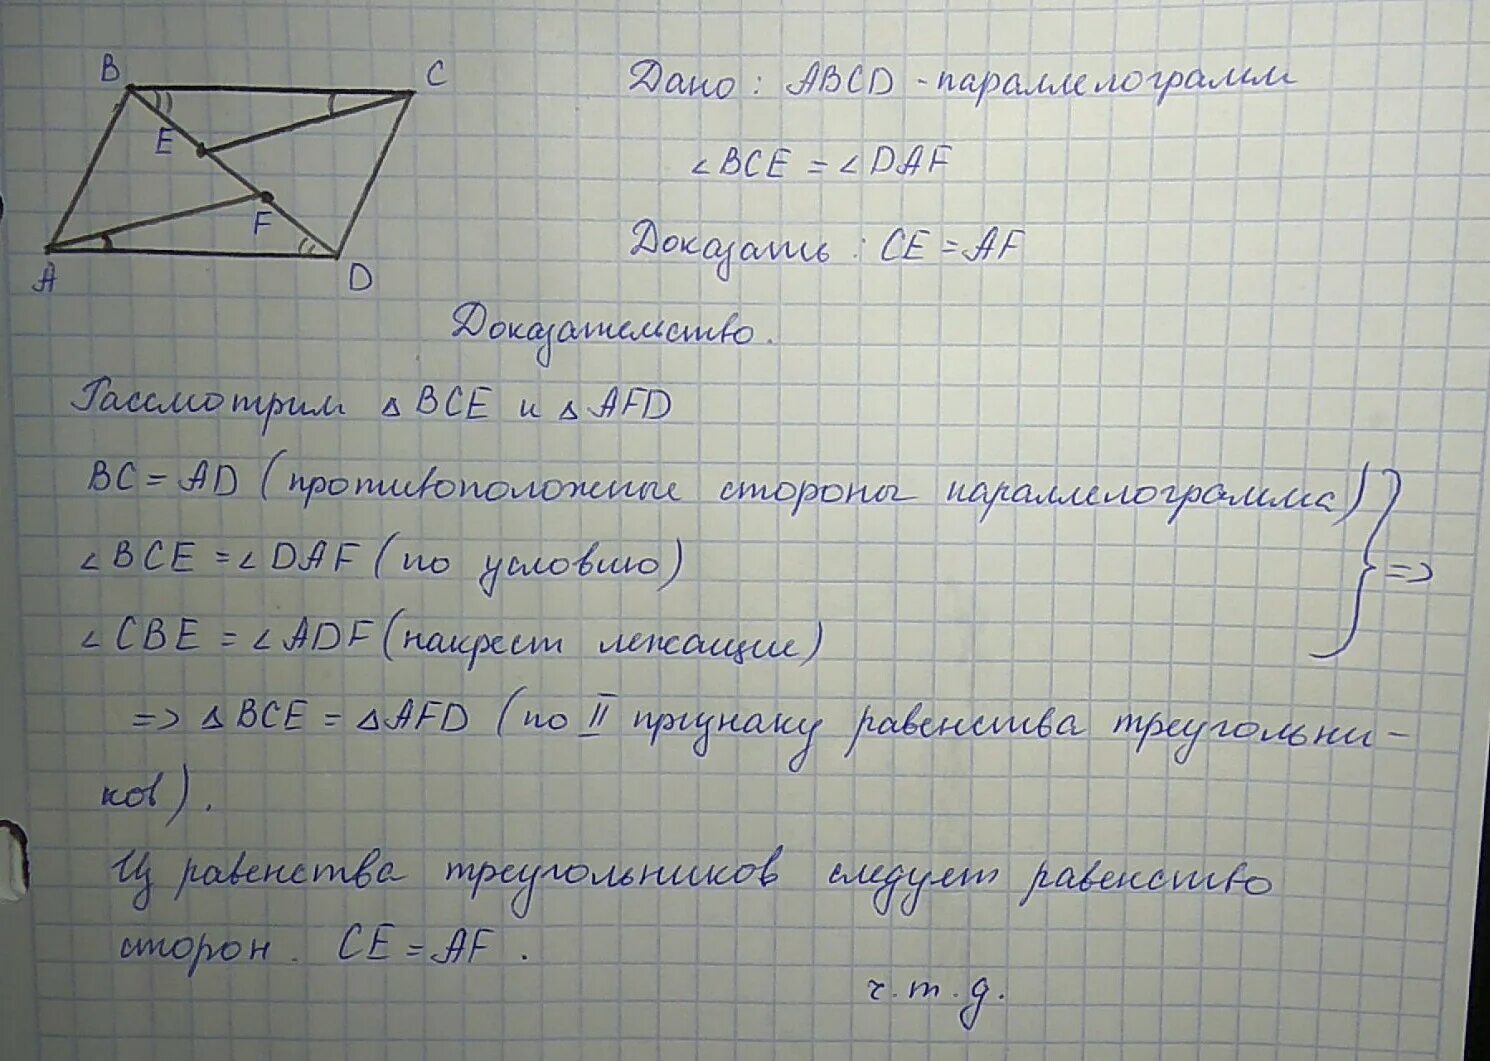 B
C
E
F
A
D
Дано: ABCD - параллелограмм
∠BCE = ∠DAF
Доказать: CE = AF
Доказательство.
Рассмотрим △BCE и △AFD
BC = AD (противоположные стороны параллелограмма)
∠BCE = ∠DAF (по условию)
∠CBE = ∠ADF (накрест лежащие)
=>
=> △BCE = △AFD (по II признаку равенства треугольни-
ков).
Из равенства треугольников следует равенство
сторон. CE = AF.
ч.т.д.